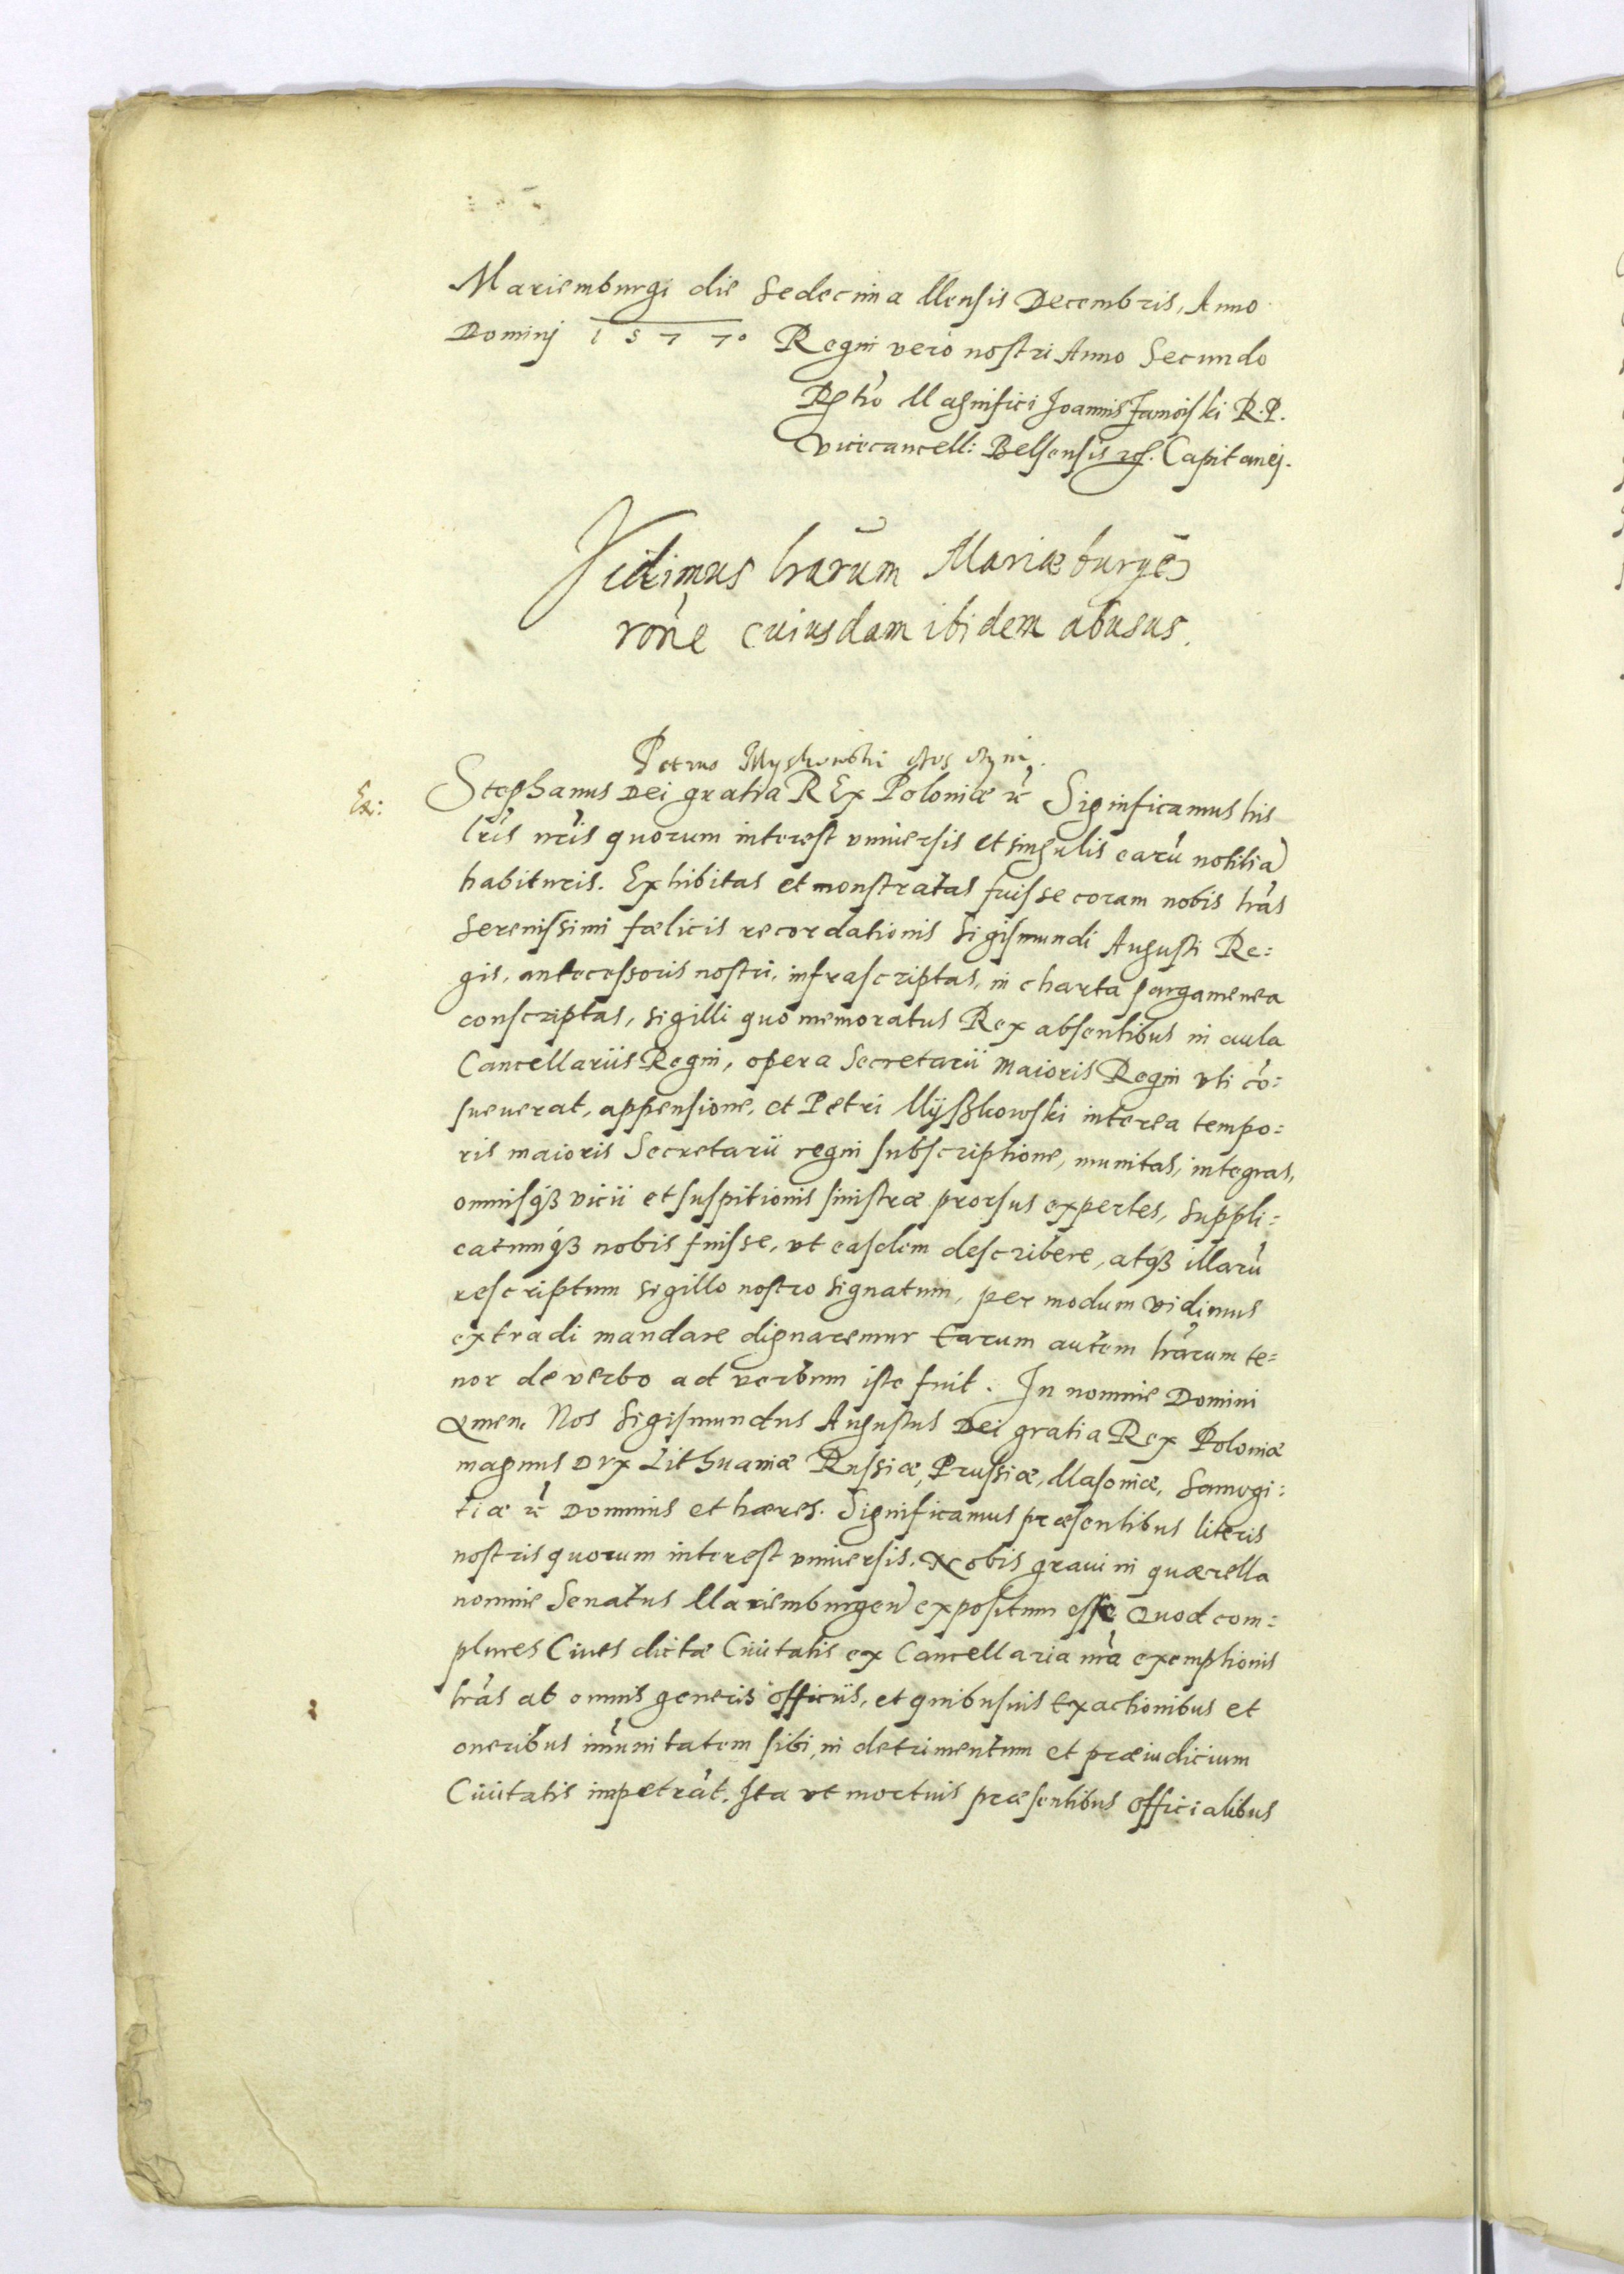 Mariemburgi die Sedecima Mensis Decembris, Anno
Dominj 1577° Regni vero nostri Anno Secundo
Magnifici Joannis Zamoiski R. P.
vicecancell: Belsensis Capitanej.
Vidimus lrarum Mariæburgeñ
rõne cuiusdam ibidem abusus.
Petrus Myskowski
Ex: Stephanus Dei gratia REx Poloniæ Significamus his
lris nris quorum interest vniuersis et singulis earũ notitia
habituris. Exhibitas et monstratas fuisse coram nobis lras
Serenissimi fælicis recordationis Sigismundi Augusti Re:
gis, antecessoris nostri, infrascriptas, in charta pargamenea
conscriptas, sigilli quo memoratus Rex absentibus in aula
Cancellariis Regni, opera Secretarii Maioris Regni vti cõ:
sueuerat, appensione, et Petri Myßkowski interea tempo:
ris maioris Secretarii regni subscriptione, munitas, integras,
omnisqȝ vicii et suspitionis sinistræ prorsus expertes, suppli:
catumqȝ nobis fuisse, vt easdem describere, atqȝ illarũ
rescriptum sigillo nostro signatum, per modum vidimus
extradi mandare dignaremur Earum autem lrarum te=
nor de verbo ad verbum iste fuit. In nomine Domini
Amen. Nos Sigismundus Augustus Dei gratia Rex Poloniæ
magnus Dvx Lithuaniæ Russiæ, Prussiæ, Masoniæ, Samogi:
tiæ Dominus et hæres. Significamus præsentibus literis
nostris quorum interest vniuersis. Nobis graui in quærella
nomine Senatus Mariemburgeñ expositum esse Quod com:
plures Ciues dictæ Ciuitatis ex Cancellaria nra exemptionis
lras ab omnis generis officiis, et quibusuis Exactionibus et
oneribus imũnitatem sibi, in detrimentum et præiudicium
Ciuitatis impetrãt. Ita vt mortuis præsentibus officialibus